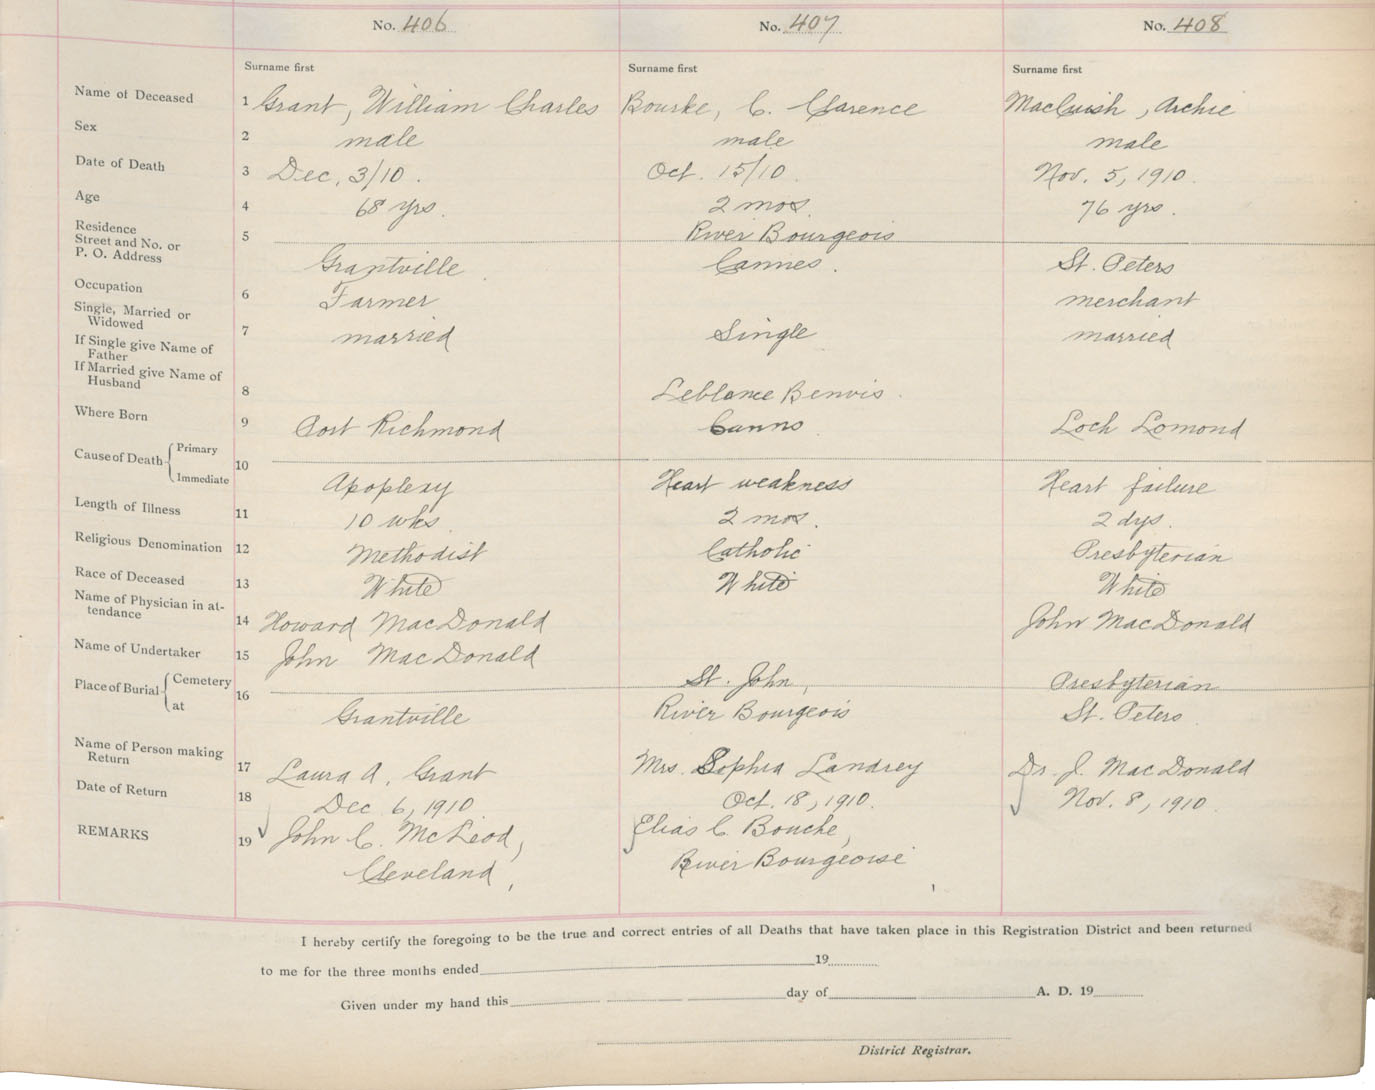 No. 406 No. 407 No. 408
Surname first Surname first Surname first
Name of Deceased 1 Grant, William Charles Bourke, C. Clarence MacCuish, Archie
Sex 2 male male male
Date of Death 3 Dec. 3/10. Oct. 15/10. Nov. 5, 1910.
Age 4 68 yrs. 2 mos. 76 yrs.
Residence
Street and No. or 5 River Bourgeois
P. O. Address Grantville. Cannes. St. Peters
Occupation 6 Farmer merchant
Single, Married or
Widowed 7 married Single married
If Single give Name of
Father
If Married give Name of
Husband 8 Leblance Benvis.
Where Born 9 Port Richmond Canns Loch Lomond
Cause of Death Primary
Immediate 10 Apoplexy Heart weakness Heart failure
Length of Illness 11 10 wks. 2 mos. 2 dys.
Religious Denomination 12 Methodist Catholic Presbyterian
Race of Deceased 13 White White White
Name of Physician in at-
tendance 14 Howard MacDonald John MacDonald
Name of Undertaker 15 John MacDonald
Place of Burial Cemetery 16 St. John, Presbyterian
at Grantville River Bourgeois St. Peters.
Name of Person making
Return 17 Laura A. Grant Mrs. Sophia Landrey Dr. J. MacDonald
Date of Return 18 Dec 6, 1910 Oct. 18, 1910. Nov. 8, 1910.
REMARKS 19 John C. McLeod, Elias C. Bouche,
Cleveland, River Bourgeoise
I hereby certify the foregoing to be the true and correct entries of all Deaths that have taken place in this Registration District and been returned
to me for the three months ended 19
Given under my hand this day of A. D. 19
District Registrar.